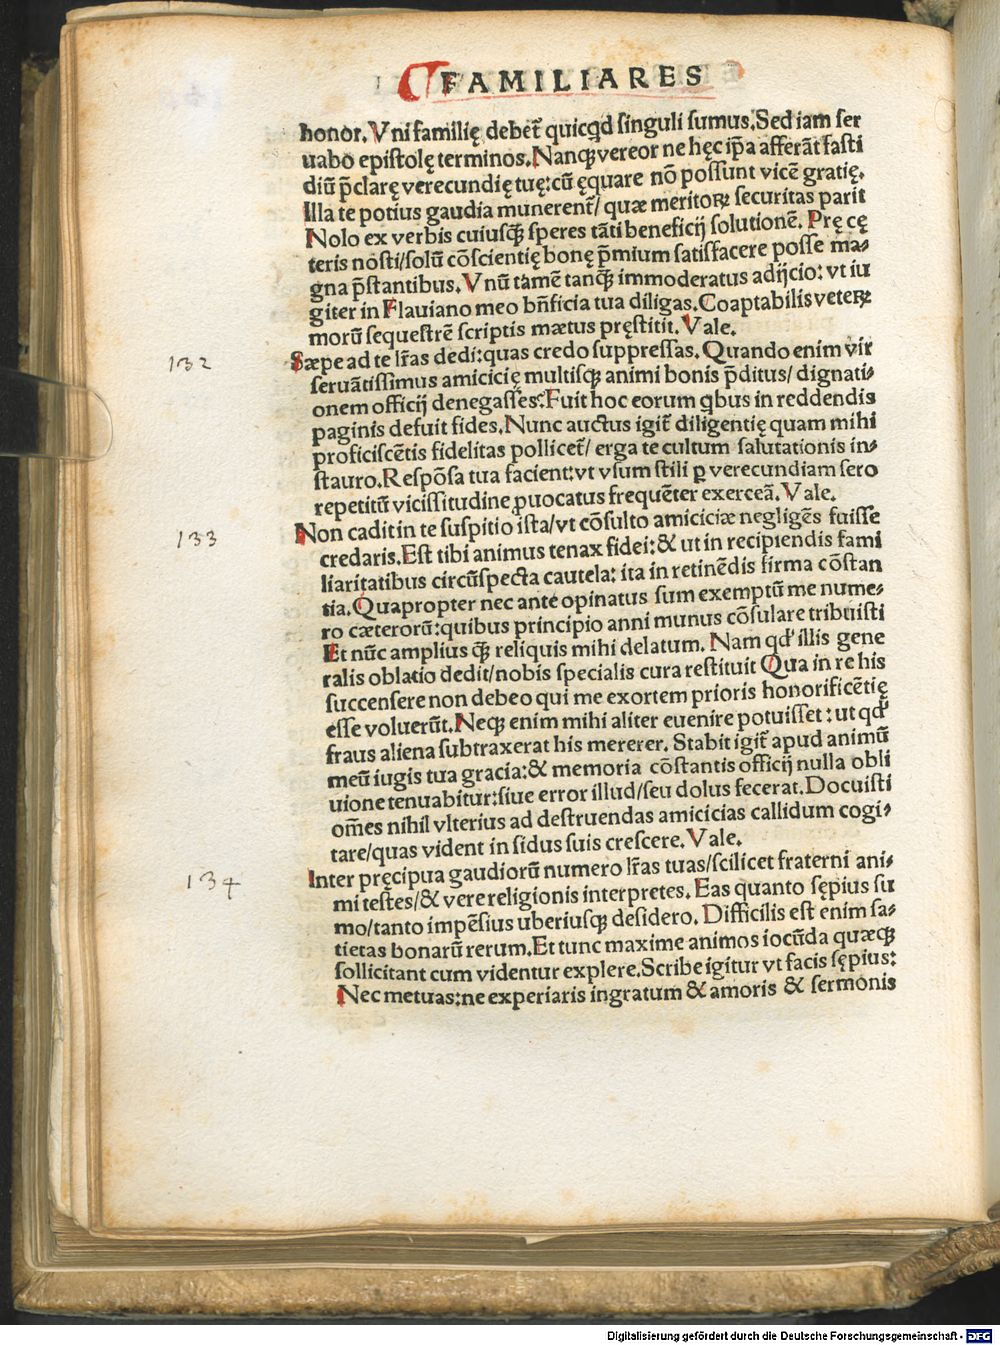 FAMILIARES
honor. Vni familię debet̃ quicqd singuli sumus. Sed iam ser
uabo epistolę terminos. Nanqꝫ vereor ne hęc ip̃a afferãt fasti
diũ p̃clarę verecundię tuę: cũ ęquare nõ possunt vicẽ gratię.
Illa te potius gaudia munerent̃/ quæ meritoꝝ securitas parit
Nolo ex verbis cuiusqꝫ speres tãti beneficij solutionẽ. Prę cę
teris nosti/ solũ cõscientię bonę p̃mium satisfacere posse ma⸗
gna p̃stantibus. Vnũ tamẽ tanqꝫ immoderatus adijcio: vt iu
giter in Flauiano meo bñficia tua diligas. Coaptabilis veteꝝ
morũ sequestrẽ scriptis mætus pręstitit. Vale.
132
Sæpe ad te lr̃as dedi: quas credo suppressas. Quando enim vir
seruãtissimus amicicię multisqꝫ animi bonis p̃ditus/ dignati⸗
onem officij denegasses? Fuit hoc eorum qbus in reddendis
paginis defuit fides. Nunc auctus igit̃ diligentię quam mihi
proficiscẽtis fidelitas pollicet̃/ erga te cultum salutationis in⸗
stauro. Respõsa tua facient: vt vsum stili ꝑ verecundiam sero
repetitũ vicissitudine ꝓuocatus frequẽter exerceã. Vale.
133
Non cadit in te suspitio ista/ vt cõsulto amiciciæ negligẽs fuisse
credaris. Est tibi animus tenax fidei: & ut in recipiendis fami
liaritatibus circũspecta cautela: ita in retinẽdis firma cõstan
tia. Quapropter nec ante opinatus sum exemptũ me nume⸗
ro cæterorũ: quibus principio anni munus cõsulare tribuisti
Et nũc amplius qꝫ reliquis mihi delatum. Nam qd' illis gene
ralis oblatio dedit/ nobis specialis cura restituit Qua in re his
succensere non debeo qui me exortem prioris honorificẽtię
esse voluerũt. Neqꝫ enim mihi aliter euenire potuisset: ut qd'
fraus aliena subtraxerat his mererer. Stabit igit̃ apud animũ
meũ iugis tua gracia: & memoria cõstantis officij nulla obli
uione tenuabitur: siue error illud/ seu dolus fecerat. Docuisti
om̃es nihil vlterius ad destruendas amicicias callidum cogi⸗
tare/ quas vident in sidus suis crescere. Vale.
134
Inter pręcipua gaudiorũ numero lr̃as tuas/ scilicet fraterni ani⸗
mi testes/ & vere religionis interpretes. Eas quanto sępius su
mo/ tanto impẽsius uberiusqꝫ desidero. Difficilis est enim sa⸗
tietas bonarũ rerum. Et tunc maxime animos iocũda quæqꝫ
sollicitant cum videntur explere. Scribe igitur vt facis sępius:
Nec metuas: ne experiaris ingratum & amoris & sermonis
Digitalisierung gefördert durch die Deutsche Forschungsgemeinschaft - DFG